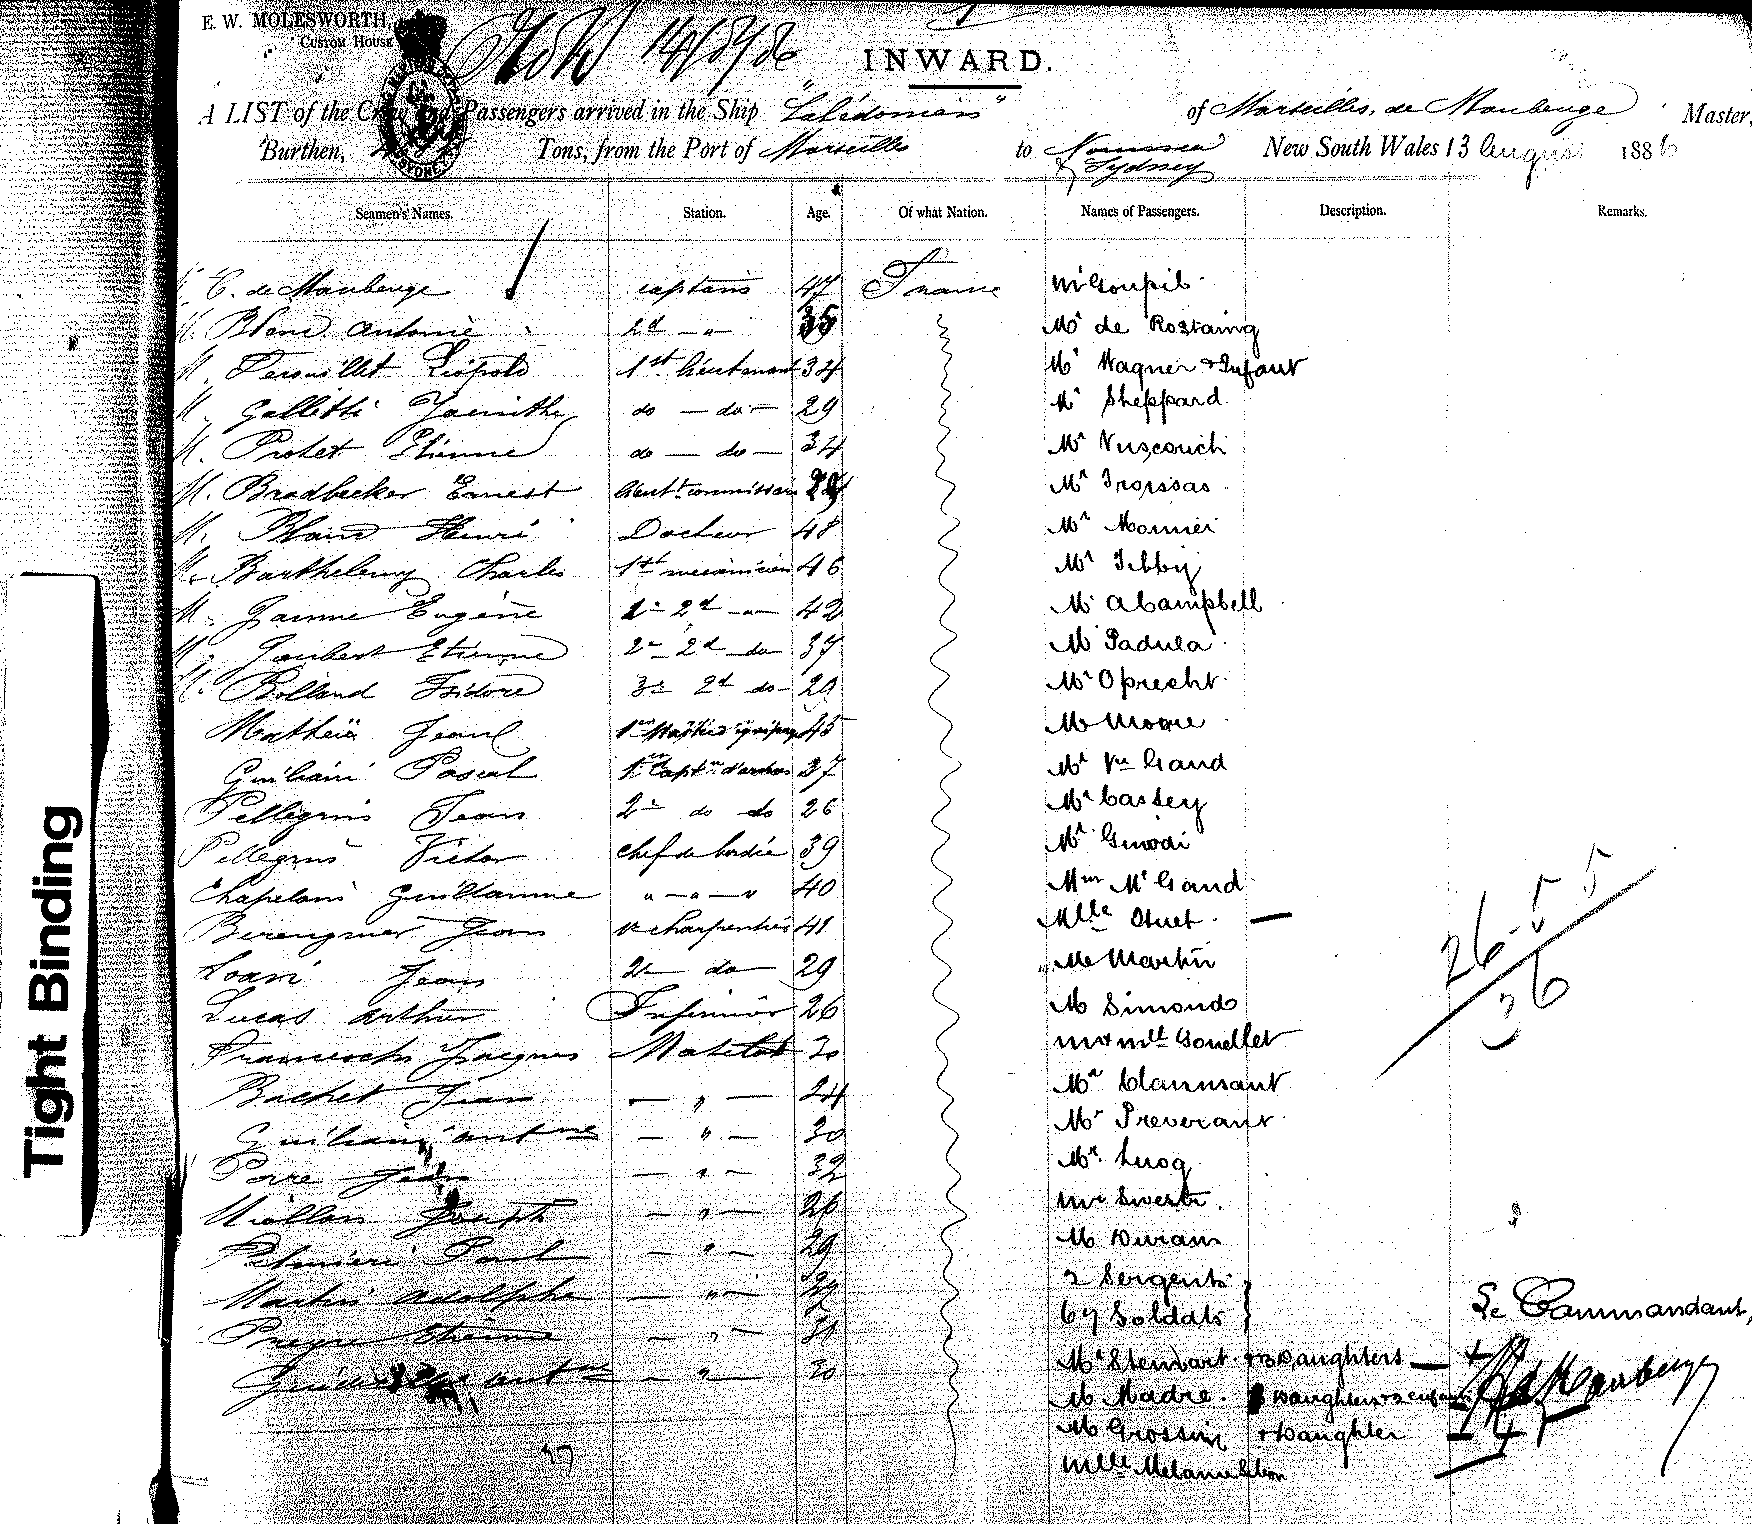 E. W. MOLESWORTH,
CUSTOM HOUSE
14/8/86
INWARD.
A LIST of the Crew and Passengers arrived in the Ship "Calédonien" of Marseilles, de Maubeuge Master,
Burthen, Tons, from the Port of Marseilles to Noumea New South Wales 13 August 1886
& Sydney
Seamen's Names. Station. Age. Of what Nation. Names of Passengers. Description. Remarks.
M. C. de Maubeuge captain 47 France Mr Goupil
M. Blanc Antoine 2d — " 35 Mr de Rostaing
M. Léopold 1st lieutenant 34 Mr Wagner & Infant
M. Galletti Jacinthe do — do — 29 Mr Sheppard
M. Protet Etienne do — do — 34 Mr Vuscovich
M. Bradbecker Ernest Lieutt commissaire Mr Troissas
M. Henri Docteur 48 Mr Monnier
M. Barthelemy Charles 1st mecanicien 46 Mr Tibby
M. Jaume Eugène 1e 2d — " — 42 Mr A Campbell
M. Joubert Etienne 2e 2d do 37 M Padula
M. Bolland Isidore 3e 2d do — 29 Mr Oprecht
Mathieu Jean 1er Maître équipage 45 Mr Moore
Guiliani Pascal 1er Captn d'armes 27 Mr Vr Gand
Pellegrini Jean 2e do do 26 Mr Castey
Pellegrini Victor chef de bordée 39 Mr Ginodi
Chapelain Guillaume " — " — " 40 Mme Mr Gand
Berenguier Jean 1r charpentier 41 Mlle Huet —
Loani Jean 2e do — 29 Me Martin
Lucas Arthur Infirmier 26 M Simond
Franceschi Jacques Matelot 30 M & Mlle Gouellet
Bachet Jean — " — 24 Mr Clammant
Guiliani Antne — " — 30 Mr Preverant
Porre — " — 32 Mr Lucq
Miollan Joseph — " — 26 Mr
Palmieri Paul — " — 29 M Durans
Martin Adolphe — " — 2 Sergents
Etienne — " — 67 Soldats
Antne — " — 30 Mr Stewart + 3 Daughters —
M Madre. Daughters + 2 enfants
M Grossin + Daughter — 4
Mlle Melanie
37
26 . 5 5
36
Le Commandant,
de Maubeuge
Tight Binding